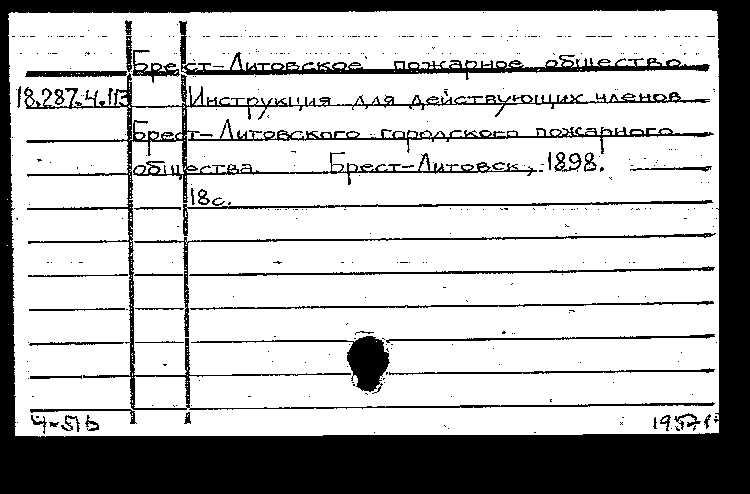 Брест-Литовское пожарное общество
18.287.4.113 Инструкция для действующих членов
Брест-Литовского городского пожарного
общества. Брест-Литовск, 1898.
18с.